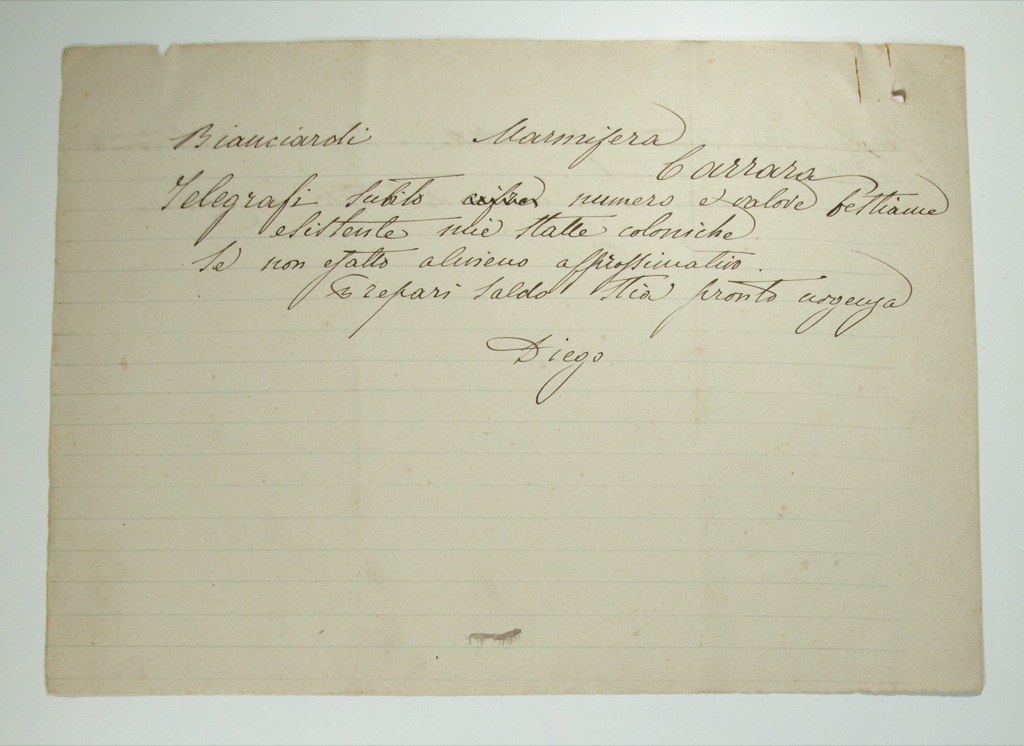 Bianciardi Marmifera
Carrara
Telegrafi subito numero e valore bestiame
esistente mie stalle coloniche
Se non esatto almeno approssimativo.
Prepari saldo stia pronto urgenza
Diego